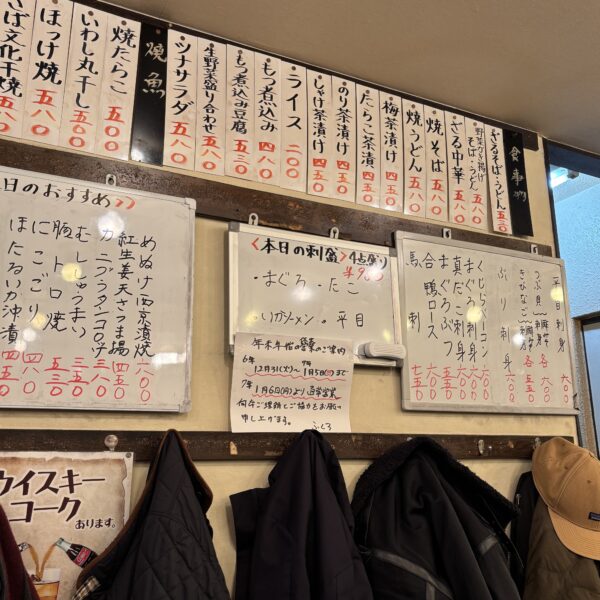 食事物
ざるそば・うどん 五五〇
野菜かき揚げそば・うどん 五八〇
ざる中華 五五〇
焼そば 五八〇
焼うどん 五八〇
梅茶漬け 四五〇
たらこ茶漬 四五〇
のり茶漬け 四五〇
しゃけ茶漬け 四五〇
ライス 二〇〇
もつ煮込み 四八〇
もつ煮込み豆腐 五三〇
生野菜盛り合わせ 五八〇
ツナサラダ 五八〇
焼魚
焼たらこ 五〇〇
いわし丸干し 五〇〇
ほっけ焼 五八〇
さば文化干焼 五八〇
本日のおすすめ
めぬけ西京漬焼 六〇〇
紅生姜天さつま揚 四五〇
カニグラタンコロッケ
むししゅうまい 五三〇
胸トロ焼 五五〇
にこごり 四八〇
ほたるいか沖漬 四五〇
<本日の刺盛> 4点盛り
¥900
・まぐろ ・たこ
・いかソーメン ・平目
年末年始の営業のご案内
6年 12月31日(火)〜 7年 1月5日(日)まで
7年 1月6日(月)より通常営業
何卒ご理解とご協力をお願い
申し上げます。
ふくろ
平目刺身 六〇〇
つぶ貝 刺身 各六〇〇
きびなご 各五五〇
ぶり刺身 六〇〇
くじらベーコン
まぐろ刺身
真だこ刺身
まぐろぶつ 六〇〇
合鴨ロース 六〇〇
馬刺 七五〇
ウイスキー
コーク
あります。